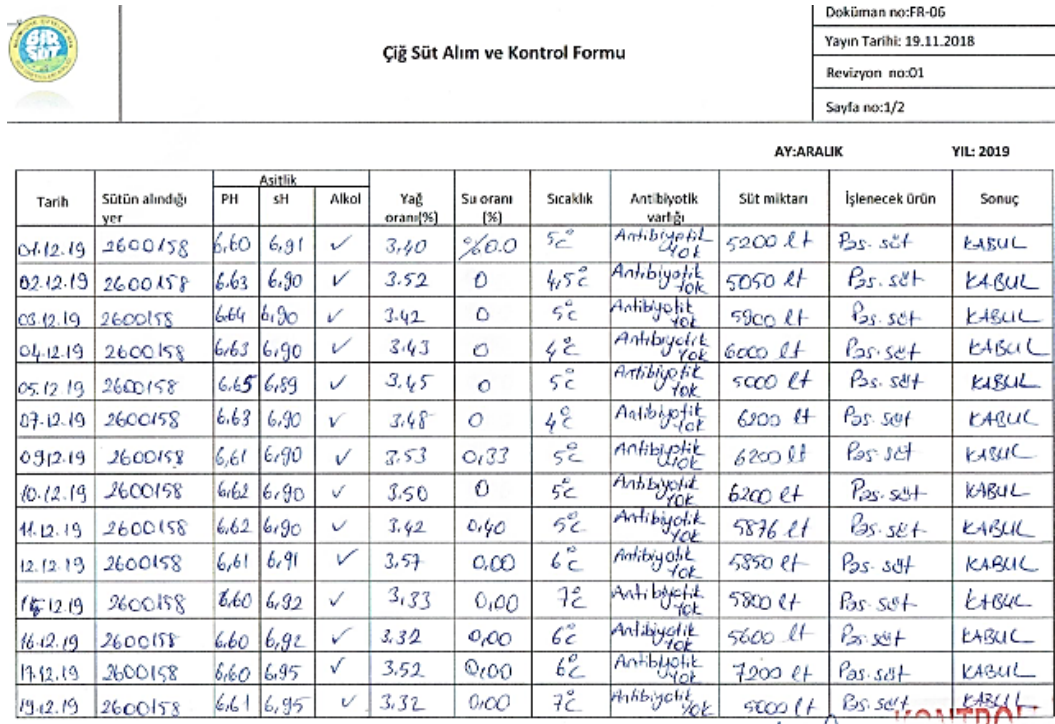 BİR SÜT
Doküman no:FR-06
Çiğ Süt Alım ve Kontrol Formu
Yayın Tarihi: 19.11.2018
Revizyon no:01
Sayfa no:1/2
AY:ARALIK YIL: 2019
Asitlik
Tarih Sütün alındığı yer PH sH Alkol Yağ oranı(%) Su oranı (%) Sıcaklık Antibiyotik varlığı Süt miktarı İşlenecek ürün Sonuç
01.12.19 2600158 6,60 6,91 ✓ 3,40 %0.0 5°C Antibiyotik Yok 5200 lt Pas. süt KABUL
02.12.19 2600158 6.63 6,90 ✓ 3.52 0 4,5°C Antibiyotik Yok 5050 lt Pas. süt KABUL
03.12.19 2600158 6.64 6,90 ✓ 3.42 0 5°C Antibiyotik Yok 5900 lt Pas. süt KABUL
04.12.19 2600158 6,63 6,90 ✓ 3.43 0 4°C Antibiyotik Yok 6000 lt Pas. süt KABUL
05.12.19 2600158 6.65 6,89 ✓ 3.45 0 5°C Antibiyotik Yok 5000 lt Pas. süt KABUL
07.12.19 2600158 6,63 6,90 ✓ 3,48 0 4°C Antibiyotik Yok 6200 lt Pas. süt KABUL
09.12.19 2600158 6,61 6,90 ✓ 3.53 0,33 5°C Antibiyotik Yok 6200 lt Pas. süt KABUL
10.12.19 2600158 6,62 6,90 ✓ 3.50 0 5°C Antibiyotik Yok 6200 lt Pas. süt KABUL
11.12.19 2600158 6,62 6,90 ✓ 3,42 0,40 5°C Antibiyotik Yok 5876 lt Pas. süt KABUL
12.12.19 2600158 6,61 6,91 ✓ 3,57 0,00 6°C Antibiyotik Yok 5850 lt Pas. süt KABUL
12.19 2600158 6,60 6,92 ✓ 3,33 0,00 7°C Antibiyotik Yok 5800 lt Pas. süt KABUL
16.12.19 2600158 6,60 6,92 ✓ 3.32 0,00 6°C Antibiyotik Yok 5600 lt Pas. süt KABUL
17.12.19 2600158 6,60 6,95 ✓ 3.52 0,00 6°C Antibiyotik Yok 7200 lt Pas. süt KABUL
19.12.19 2600158 6,61 6,95 ✓ 3.32 0,00 7°C Antibiyotik Yok 5000 lt Pas. süt KABUL